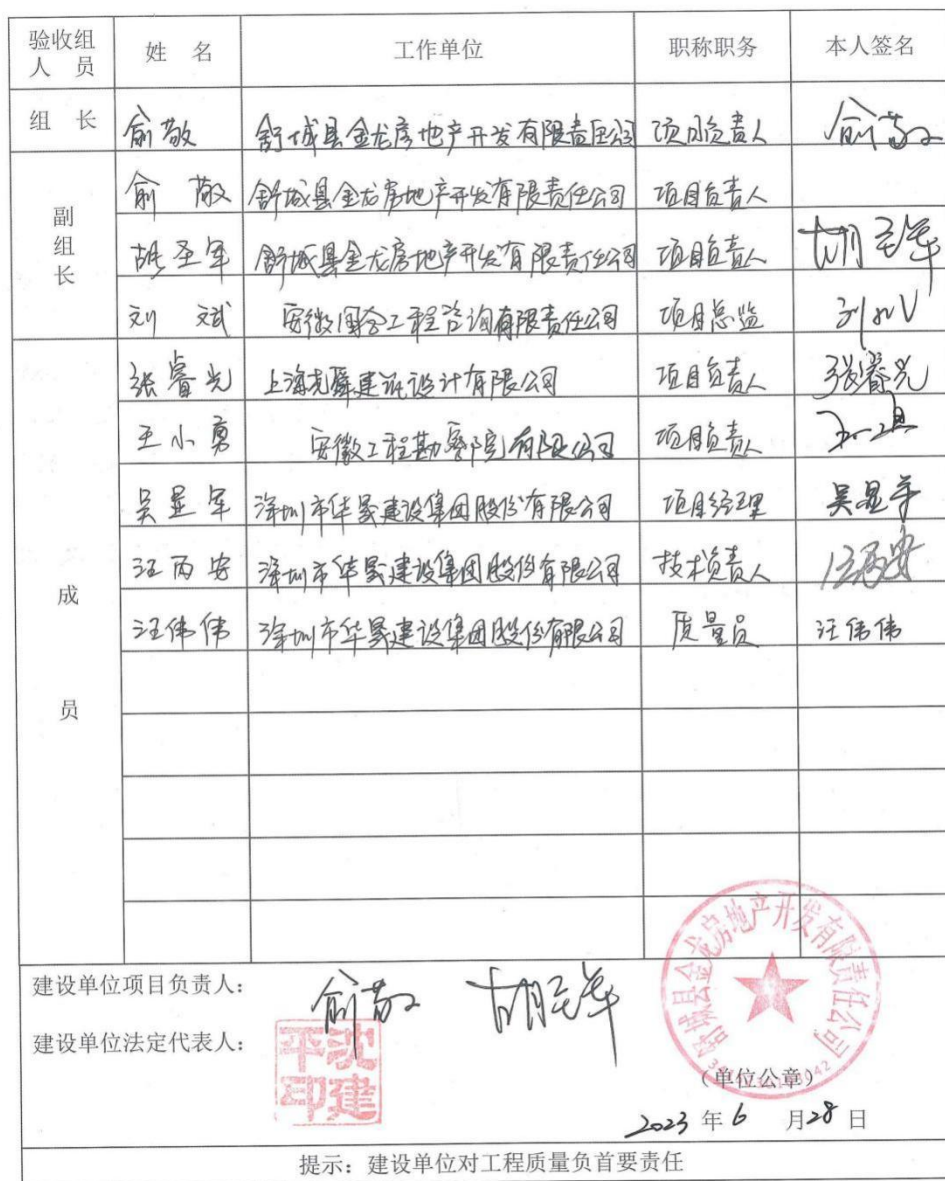 验收组人员 姓 名 工作单位 职称职务 本人签名
组 长 俞敬 舒城县金龙房地产开发有限责任公司 项目负责人 俞敬
副组长
俞 敬 舒城县金龙房地产开发有限责任公司 项目负责人
胡圣军 舒城县金龙房地产开发有限责任公司 项目负责人 胡圣军
刘 斌 安徽国合工程咨询有限责任公司 项目总监 刘斌
成 员
张睿光 上海尧舜建筑设计有限公司 项目负责人 张睿光
王小勇 安徽工程勘察院有限公司 项目负责人
吴显军 深圳市华晟建设集团股份有限公司 项目经理 吴显军
汪丙安 深圳市华晟建设集团股份有限公司 技术负责人 汪丙安
汪伟伟 深圳市华晟建设集团股份有限公司 质量员 汪伟伟
建设单位项目负责人: 俞敬 胡圣军
建设单位法定代表人: 沈建平印
舒城县金龙房地产开发有限责任公司
(单位公章)
2023 年 6 月 28 日
提示: 建设单位对工程质量负首要责任